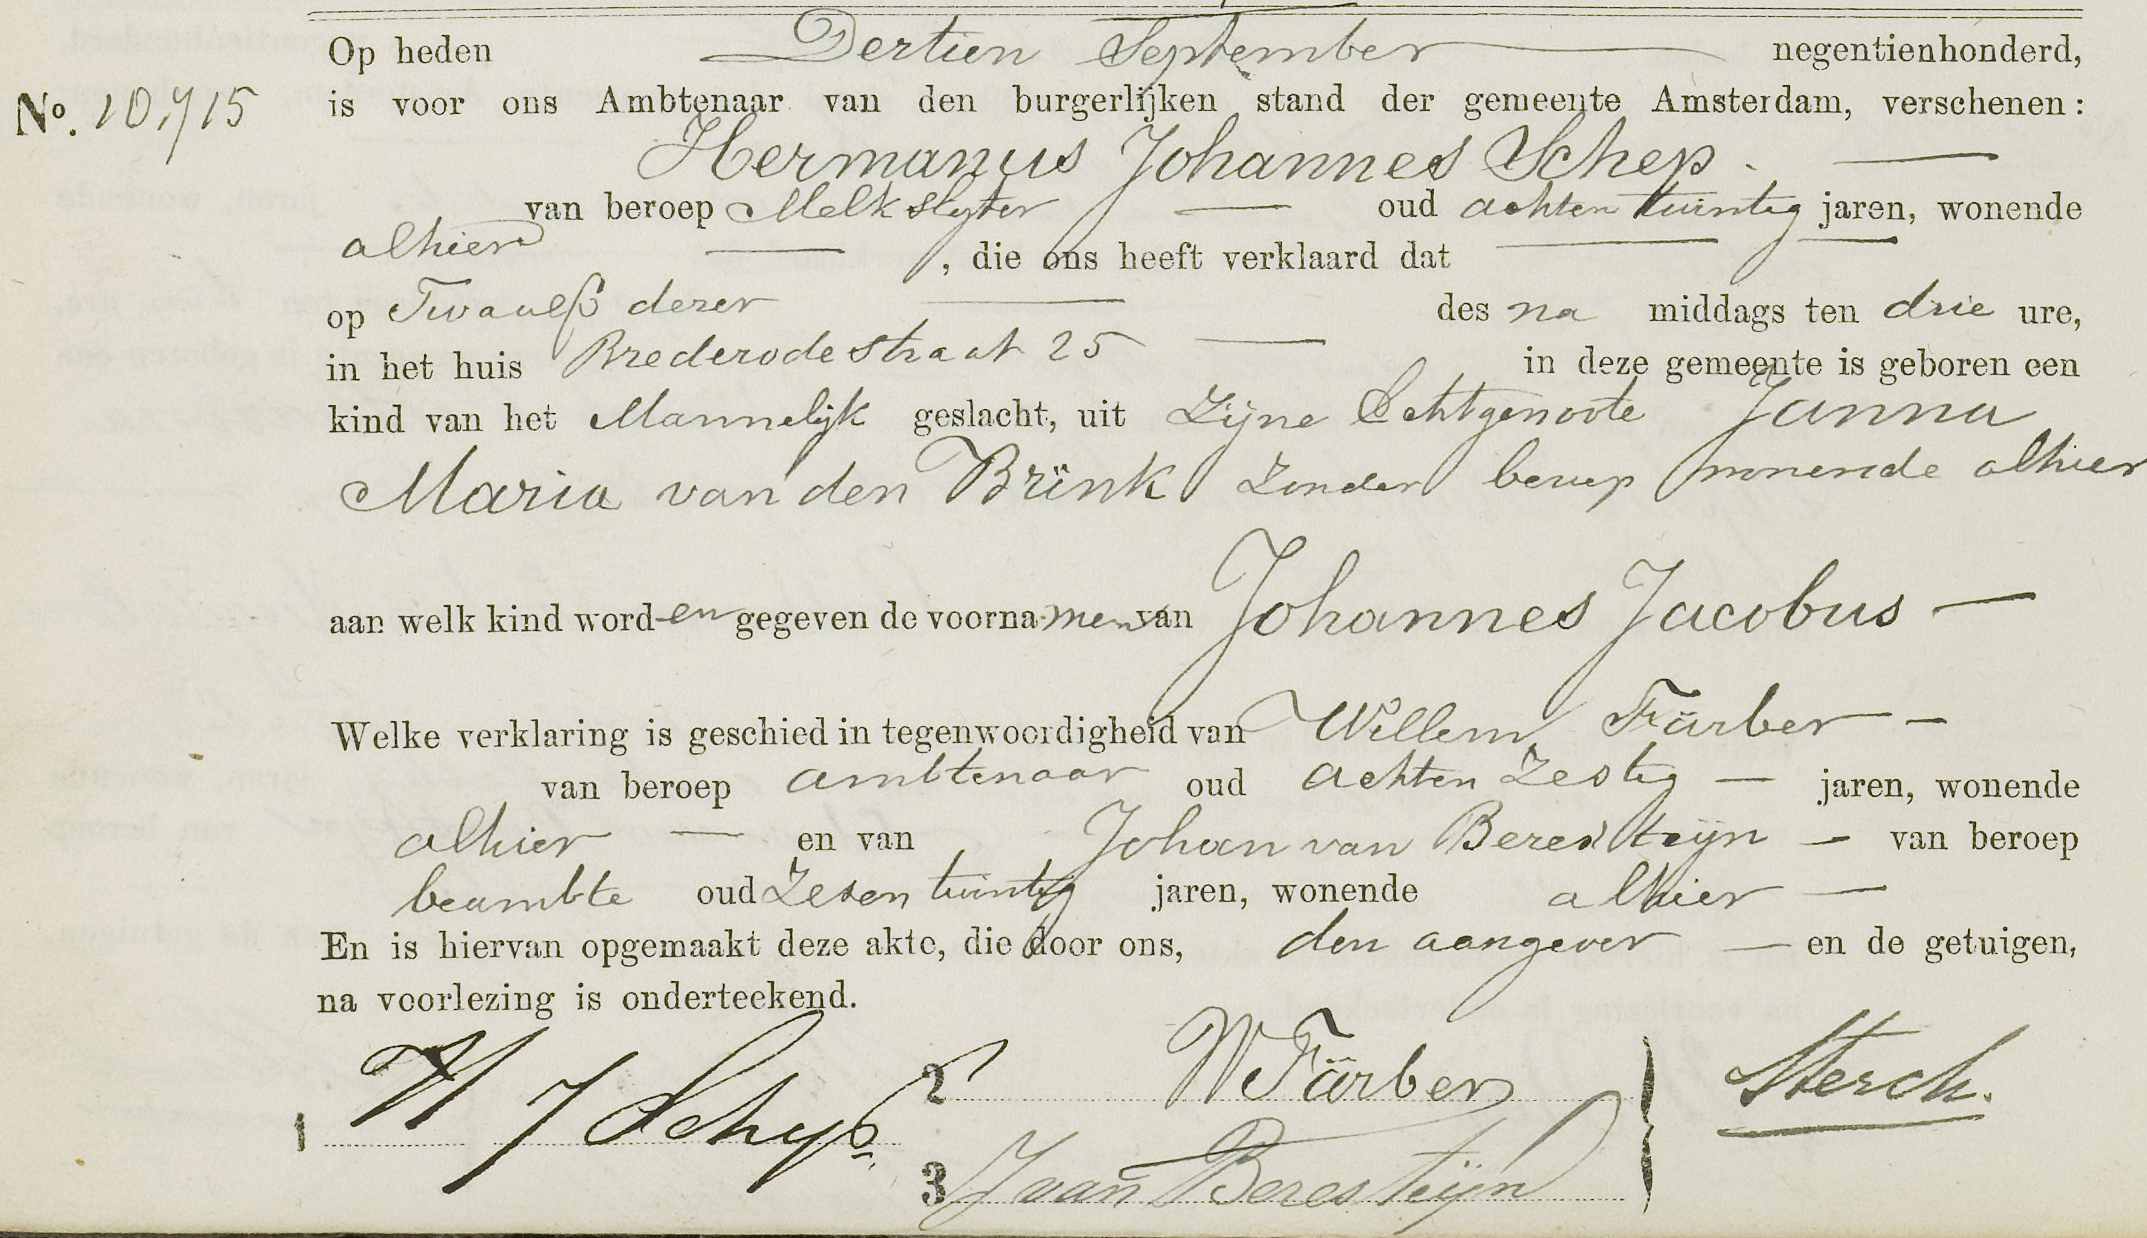 Op heden Dertien September negentienhonderd,
No. 10,715 is voor ons Ambtenaar van den burgerlijken stand der gemeente Amsterdam, verschenen:
Hermanus Johannes Schep.
van beroep Melkslyter oud achten twintig jaren, wonende
alhier, die ons heeft verklaard dat
op Twaalf dezer des na middags ten drie ure,
in het huis Brederodestraat 25 in deze gemeente is geboren een
kind van het Mannelijk geslacht, uit Zijne Echtgenoote Janna
Maria van den Brink Zonder beroep wonende alhier
aan welk kind word en gegeven de voorna men van Johannes Jacobus
Welke verklaring is geschied in tegenwoordigheid van Willem Färber
van beroep ambtenaar oud achten Zestig jaren, wonende
alhier en van Johan van Beresteijn van beroep
beambte oud Zesen twintig jaren, wonende alhier
En is hiervan opgemaakt deze akte, die door ons, den aangever en de getuigen,
na voorlezing is onderteekend.
1 H J Schep
2 W Färber
3 J van Beresteijn
Sterck.